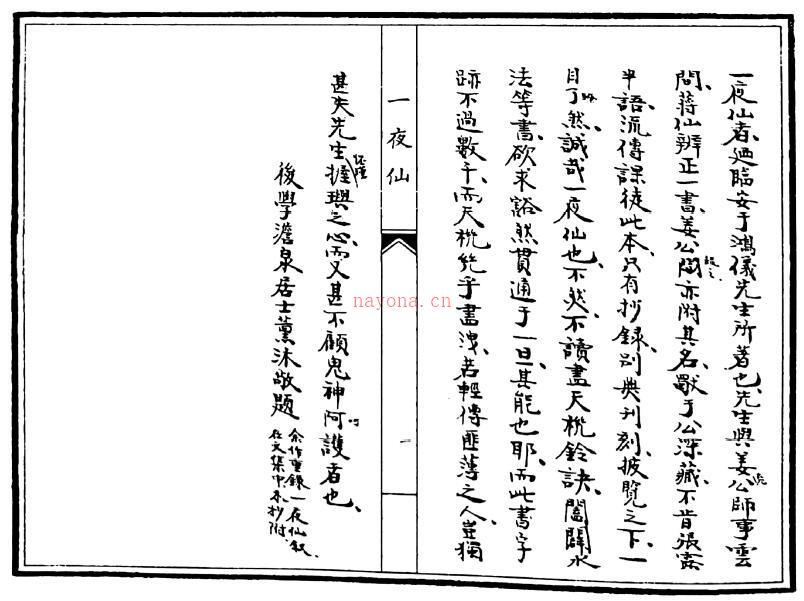 一夜仙者、迺臨安于鴻儀先生所著也、先生與姜公師事雲
間、蔣仙辨正一書、姜公閱亦附其名、獨于公深藏、不肯張
半語、流傳課徒此本、只有抄錄、別無刊刻、披覽之下、一
目了然、誠哉一夜仙也、不然、不讀盡天機鈐訣、闔闢水
法等書、欲求豁然貫通于一旦、其能也耶、而此書字
跡不過數千、而天機幾乎盡洩、若輕傳匪薄之人、豈獨
一夜仙
一
甚失先生握璵之心、而又甚不顧鬼神阿護者也、
後學澹泉居士薰沐敬題
余作重錄一夜仙敘、
在文集中、未抄附、
nayona.cn